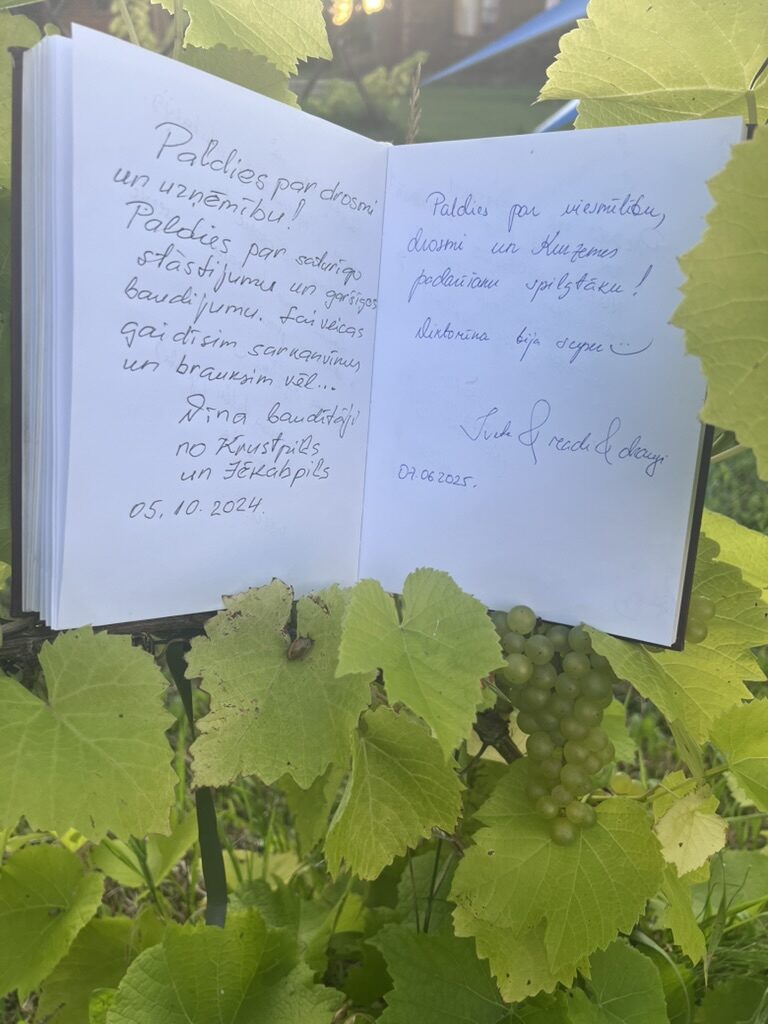 Paldies par drosmi
un uzņēmību!
Paldies par saturīgo
stāstījumu un garšīgos
baudījumu. Lai veicas
gaidīsim sarkanvīnus
un brauksim vēl...
Vīna baudītāji
no Krustpils
un Jēkabpils
05.10.2024.
Paldies par viesmīlību,
drosmi un Kurzemes
padarīšanu spilgtāku!
Viktorīna bija super
& radi & draugi
07.06.2025.